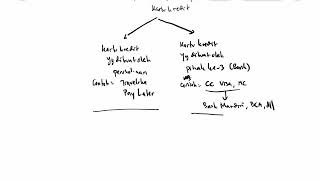 Kartu kredit
Kartu kredit
Yg dibuat oleh
perusahaan
Contoh = Traveloka
Pay Later
Kartu kredit
Yg dibuat oleh
pihak ke-3 (Bank)
Contoh = CC VISA, MC
Bank Mandiri, BCA, dll